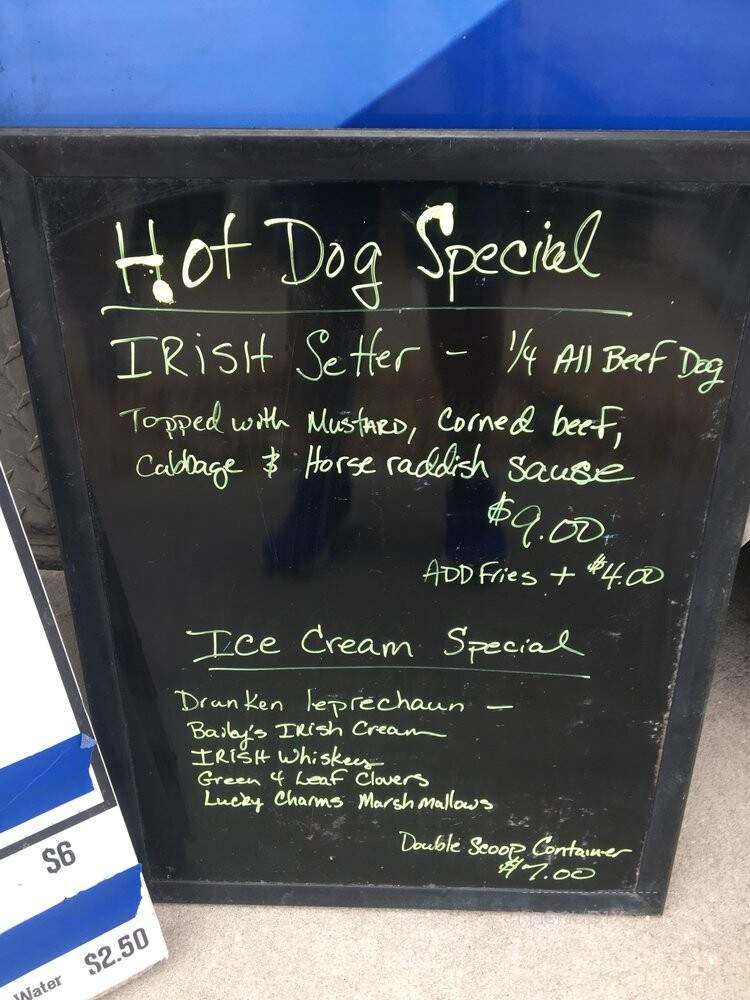 Hot Dog Special
IRISH Setter - 1/4 All Beef Dog
Topped with MustARD, Corned beef,
Cabbage & Horse raddish Sause
$9.00
ADD Fries + $4.00
Ice Cream Special
Drunken leprechaun -
Baily's IRish Cream
IRISH Whiskey
Green 4 Leaf Clovers
Lucky Charms Marshmallows
Double Scoop Container
$7.00
$6
Water $2.50